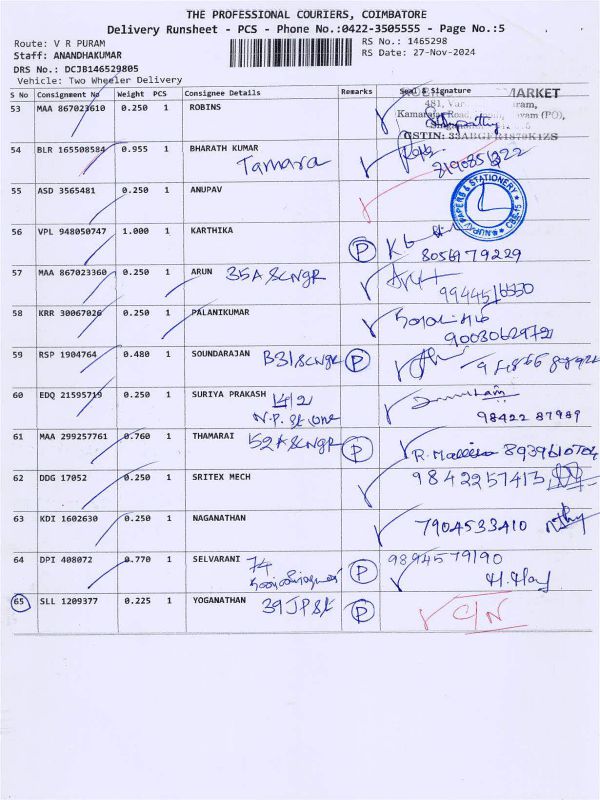 THE PROFESSIONAL COURIERS, COIMBATORE
Delivery Runsheet - PCS - Phone No.:0422-3505555 - Page No.:5
Route: V R PURAM
RS No.: 1465298
Staff: ANANDHAKUMAR
RS Date: 27-Nov-2024
DRS No.: DCJB146529805
Vehicle: Two Wheeler Delivery
S No Consignment No Weight PCS Consignee Details Remarks Seal & Signature
MARKET
53 MAA 867023610 0.250 1 ROBINS
481,
Kamarajar Road, (PO),
GSTIN: 33ABGFR1870K1ZS
54 BLR 165508584 0.955 1 BHARATH KUMAR
Tamara
55 ASD 3565481 0.250 1 ANUPAV
PAPERS & STATIONERY
CBE-15
56 VPL 948050747 1.000 1 KARTHIKA P
8056979229
57 MAA 867023360 0.250 1 ARUN 35A SCNGR
58 KRR 30067026 0.250 1 PALANIKUMAR
9003062972
59 RSP 1904764 0.480 1 SOUNDARAJAN B31 SCNGR P
60 EDQ 21595719 0.250 1 SURIYA PRAKASH 14/2
N.P. St
98422 87989
61 MAA 299257761 0.760 1 THAMARAI 152A SCNGR P
8939610704
62 DDG 17052 0.250 1 SRITEX MECH 9842257413
63 KDI 1602630 0.250 1 NAGANATHAN 7904533410
64 DPI 408072 0.770 1 SELVARANI 74 P 9894579190
65 SLL 1209377 0.225 1 YOGANATHAN 39 JP St P C/N